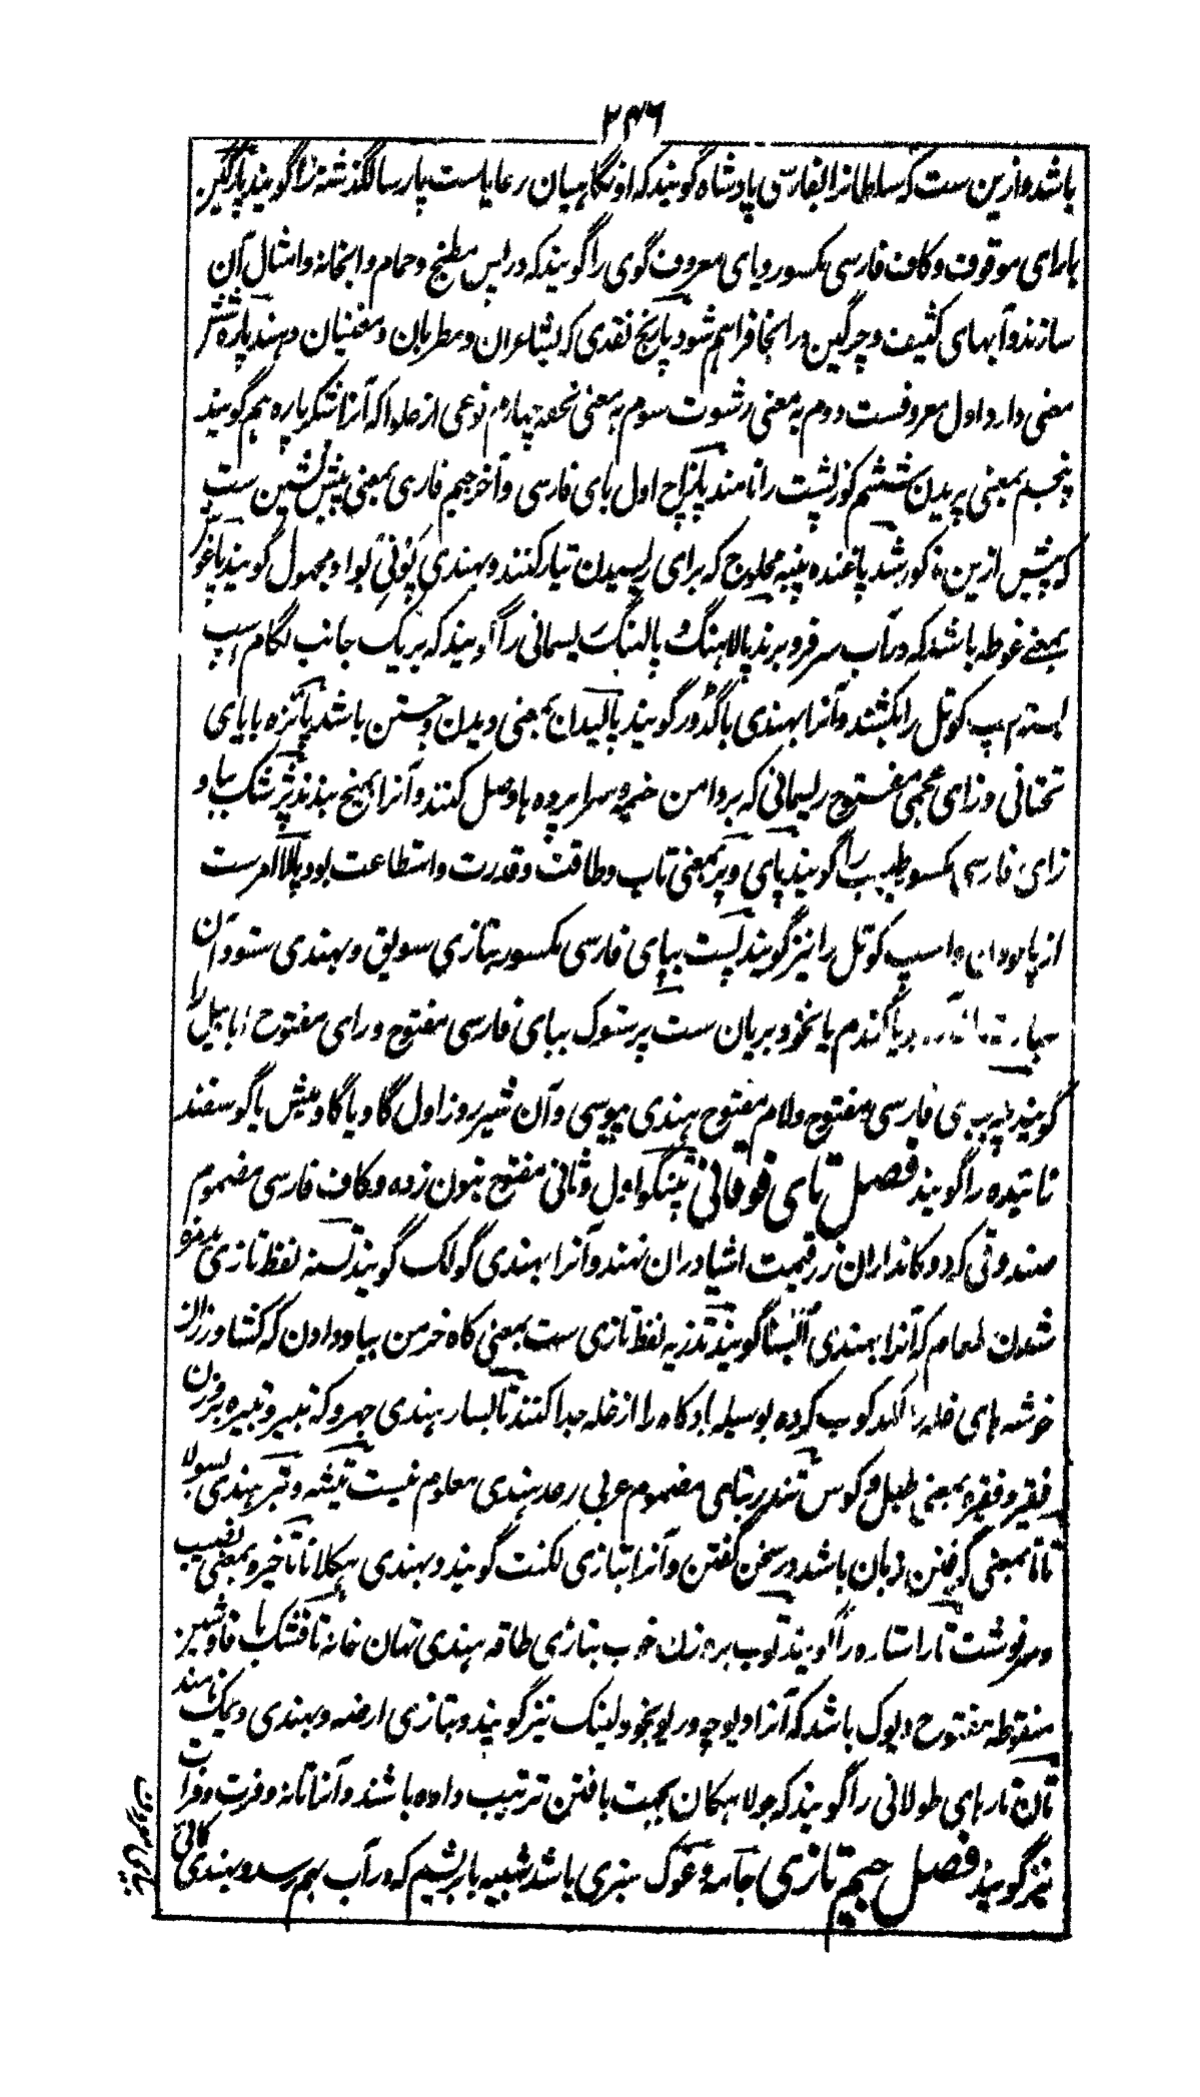 ۲۴۶
باشد و ازین ست که سلطانرا بفارسی پادشاه گویند که او نگاهبان رعایاست پار سالگذشته را گویند پارگین
بارای موقوف و کاف فارسی مکسور و یای معروف گوی را گویند که در پس مطبخ و حمام و آبخانه و امثال آن
سازند و آبهای کثیف و چرگین در انجا فراهم شود پارنج نقدی که بشاعران و مطربان و مغنیان دهند پاره شش
معنی دارد اول معروفست دوم به معنی رشوت سوم به معنی تحفه چهارم نوعی از حلوا که آنرا شکر پاره هم گویند
پنجم بمعنی پریدن ششم کوز پشت را نامند پازاج اول بای فارسی و آخر جیم فارسی بمعنی پیش نشین ست
که پیش ازین مذکور شد پاغنده پنبه محلوج که برای ریسیدن تیار کنند و بهندی پونی بواو مجهول گویند پاغوش
بمعنے غوطه باشد که در آب سر فرو برند پالاهنگ و پالهنگ ریسمانی را گویند که بر یک جانب لگام اسپ
بسته اسپ کوتل را بکشند و آنرا بهندی باگڈور گویند پالیدن بمعنی دیدن و جستن باشد پائزه بایای
تحتانی و زای عجمی مفتوح ریسمانی که بر دامن خیمه و سراپرده ها وصل کنند و آنرا بمیخ بندند پزشک ببا و
زای فارسی مکسور طبیب را گویند پای و پر بمعنی تاب و طاقت و قدرت و استطاعت بود پالا امرست
از پالودن و اسپ کوتل را نیز گویند پست ببای فارسی مکسور بتازی سویق و بهندی ستو و آن
بریا گندم یا نخود بریان ست پرستوک ببای فارسی مفتوح و رای مفتوح ابابیل را
گویند پله ببای فارسی مفتوح و لام مفتوح هندی پیوسی و آن شیر روز اول گاو یا گاومیش یا گوسفند
زائیده را گویند فصل تای فوقانی تبنگو اول و ثانی مفتوح بنون زده و کاف فارسی مضموم
صندوقی که دوکانداران زر قیمت اشیا دران نهند و آنرا بهندی گولک گویند تسنه لفظ تازی بدمزه
شدن طعام که آنرا بهندی اُبسنا گویند تذریه لفظ تازی ست بمعنی کاه خرمن بباد دادن که کشاورزان
خوشه های غله را لکد کوب کرده بوسیله باد کاه را از غله جدا کنند تابسار هندی جهروکه تبیر و تبیره بر وزن
فقیر و فقیره بمعنی طبل و کوس تندر بتای مضموم عربی رعد هندی معلوم نیست تیشه و تبر هندی بسولا
تاتا بمعنی گرفتن زبان باشد در سخن گفتن و آنرا بتازی لکنت گویند و بهندی هکلانا تاخیره بمعنی نصیب
و سرنوشت تارا ستاره را گویند توب بر وزن خوب بتازی طاقه هندی تهان خانه تافشک با فا و شین
منقوطه مفتوح دیوک باشد که آنرا دیوچه و ریونجو و لینک نیز گویند و بتازی ارضه و بهندی دیمک نامند
تان تارهای طولانی را گویند که جولاهگان بجهت بافتن ترتیب داده باشند و آنرا تانه و فرت و فرات
نیز گویند فصل جیم تازی جامه غوک سبزی باشد شبیه بابریشم که در آب بهم رسد و بهندی کائی